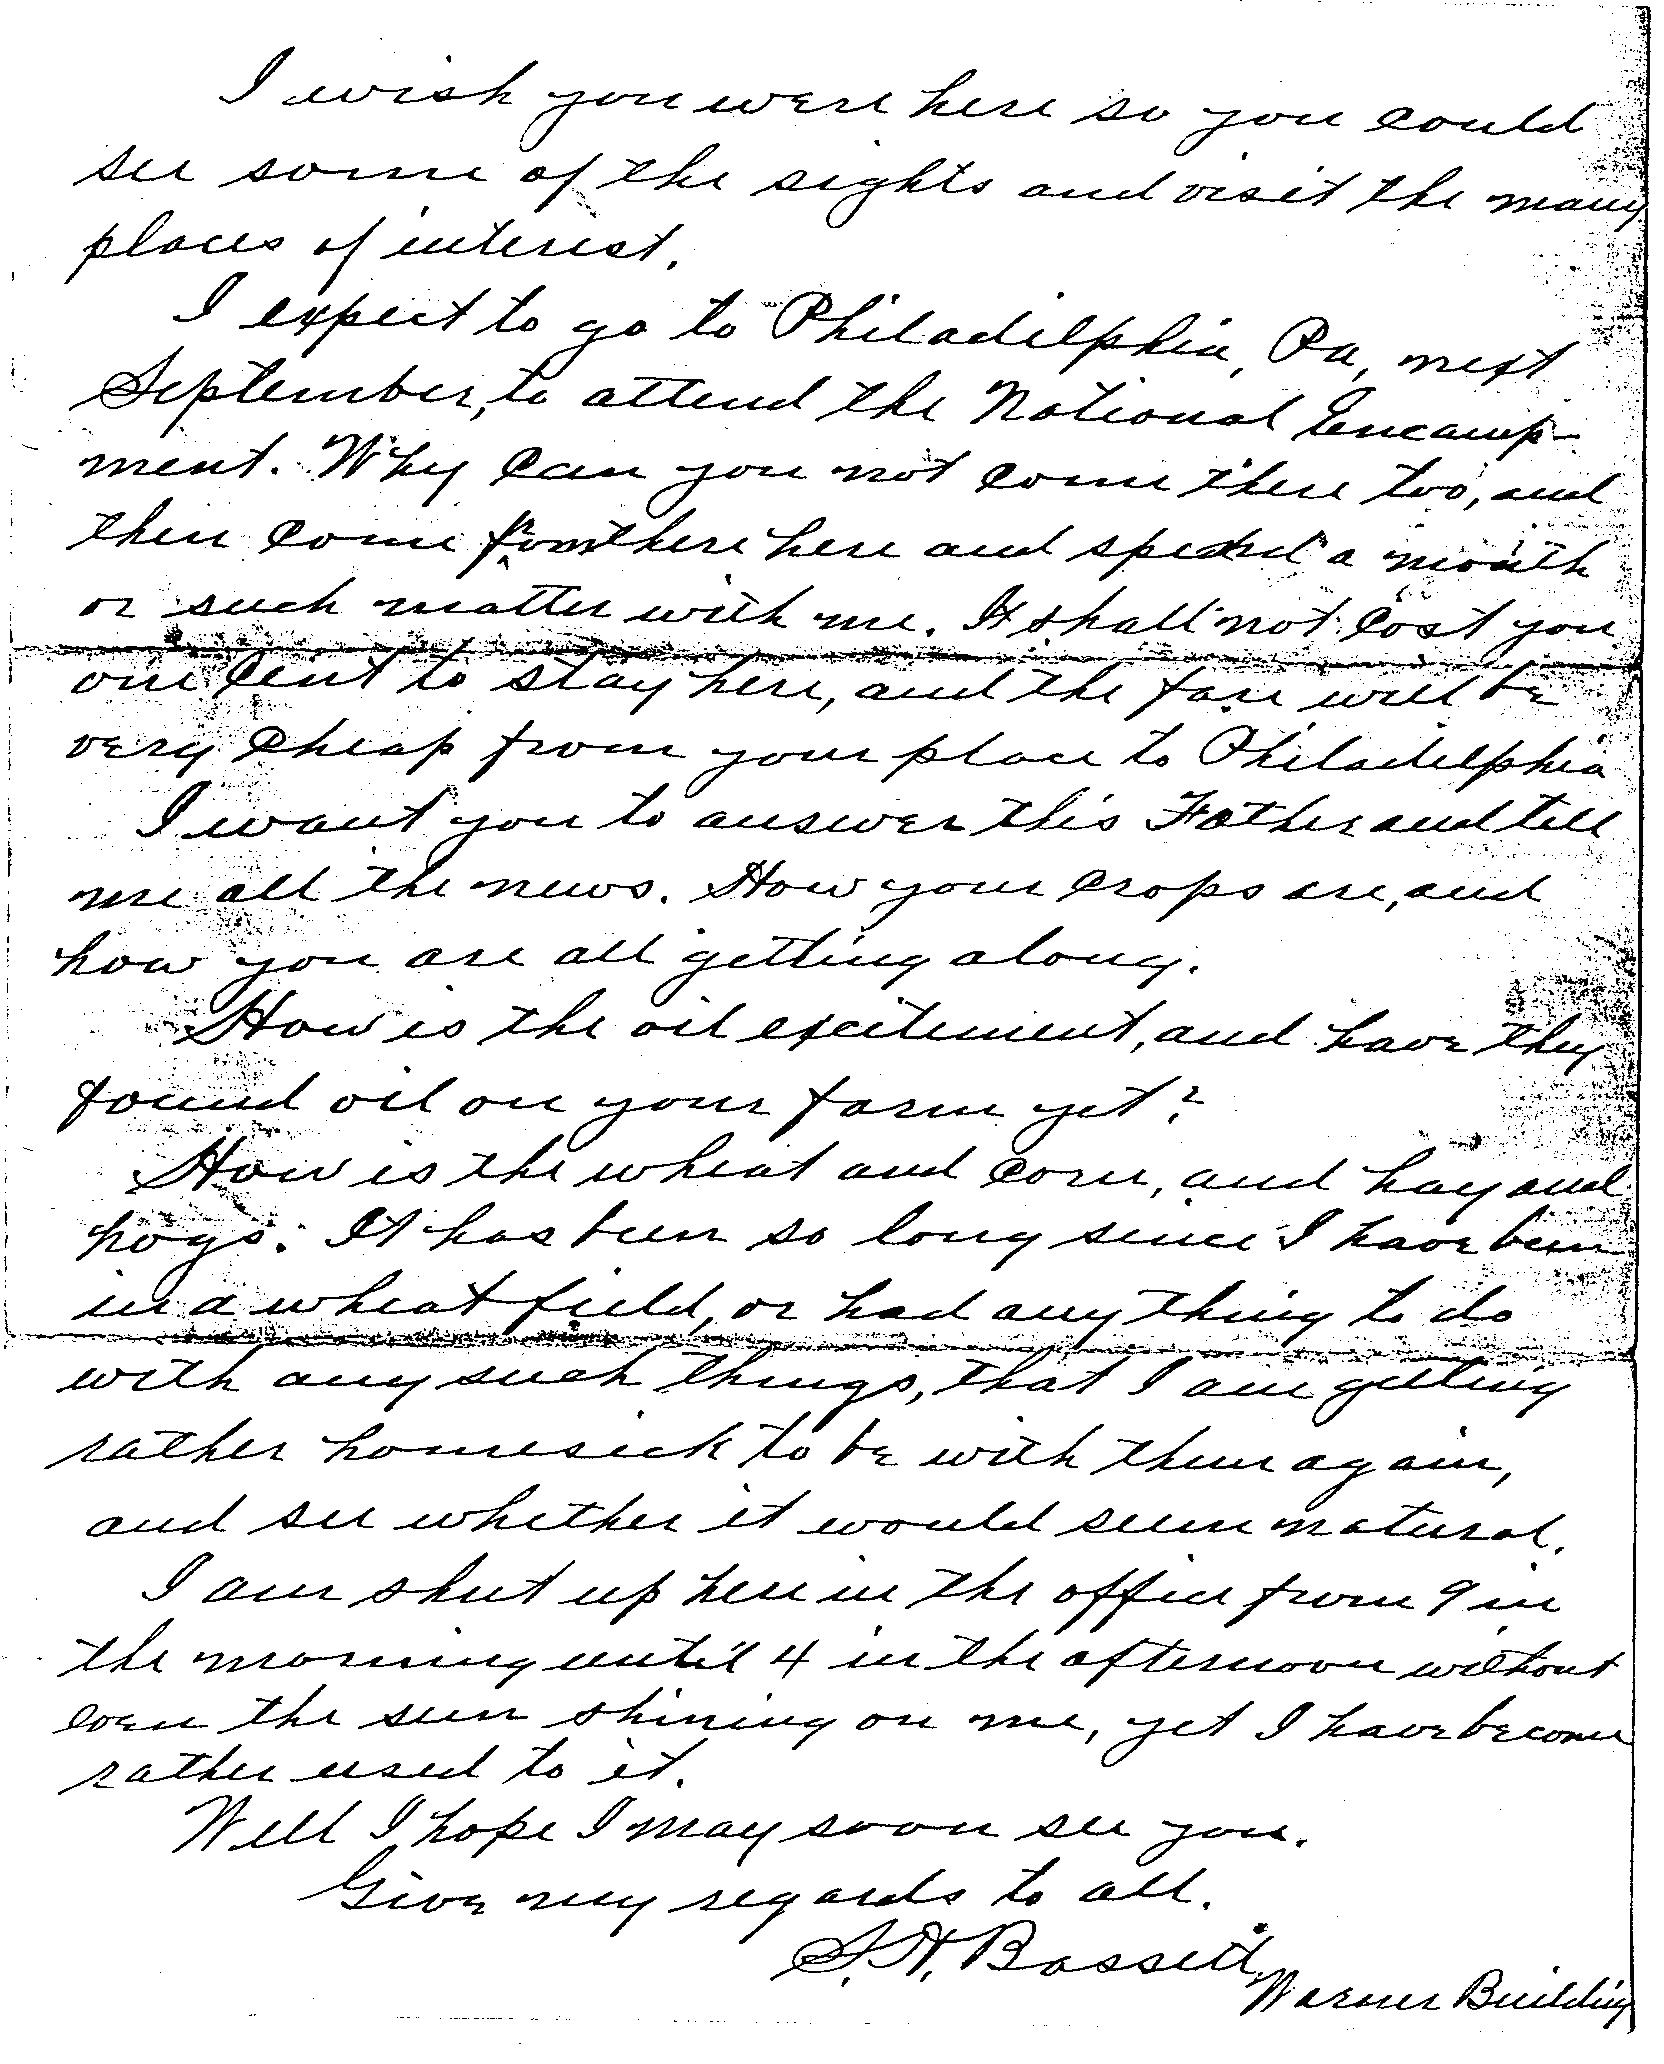 I wish you were here so you could
see some of the sights and visit the many
places of interest.
I expect to go to Philadelphia, Pa, next
September, to attend the National Encamp-
ment. Why can you not come there too, and
then come from there here and spend a month
or such matter with me. It shall not cost you
one cent to stay here, and the fare will be
very cheap from your place to Philadelphia
I want you to answer this Father and tell
me all the news. How your crops are, and
how you are all getting along.
How is the oil excitement, and have they
found oil on your farm yet?
How is the wheat and corn, and hay and
hogs. It has been so long since I have been
in a wheat field, or had any thing to do
with any such things, that I am getting
rather homesick to be with them again,
and see whether it would seem natural.
I am shut up here in the office from 9 in
the morning until 4 in the afternoon without
even the sun shining on me, yet I have become
rather used to it.
Well I hope I may soon see you.
Give my regards to all.
S. H. Bassett,
Warner Building